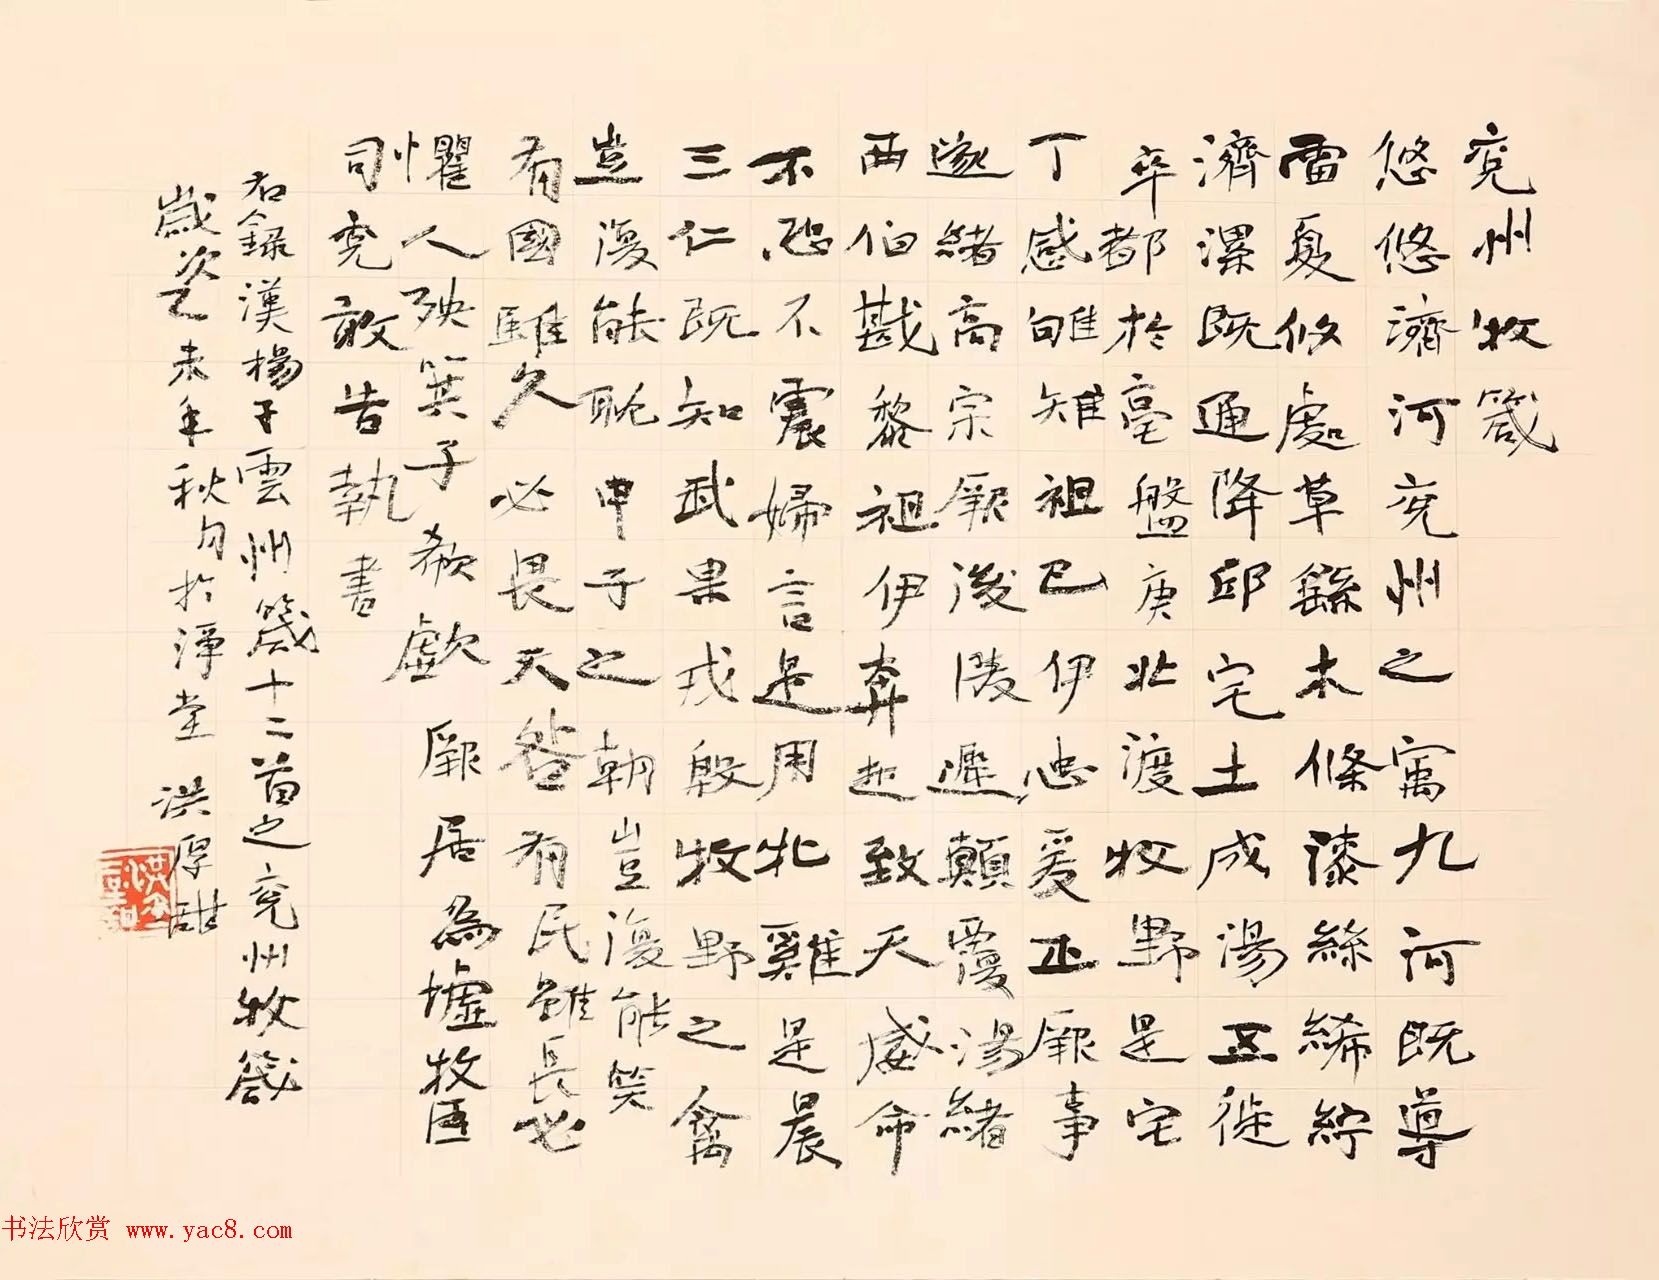 兖州牧箴
悠悠濟河兖州之寓九河既導
雷夏攸處草繇木條漆絲絺紵
濟漯既通降邱宅土成湯五徙
卒都於亳盤庚北渡牧野是宅
丁感雊雉祖己伊忠爰正厥事
遂緒高宗厥後陵遲顛覆湯緒
西伯戡黎祖伊奔赴致天威命
不恐不震婦言是用牝雞是晨
三仁既知武果戎殷牧野之禽
豈復能耽甲子之朝豈復能笑
有國雖久必畏天咎有民雖長必
懼人殃箕子欷歔厥居為墟牧臣
司兖敢告執書
右錄漢楊子雲州箴十二首之兖州牧箴
歲次乙未年秋旬於淨堂 洪厚甜
书法欣赏 www.yac8.com